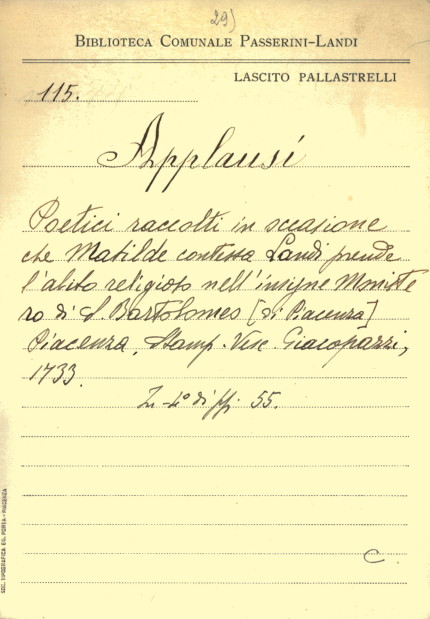 29)
BIBLIOTECA COMUNALE PASSERINI-LANDI
LASCITO PALLASTRELLI
115.
Applausi
Poetici raccolti in occasione
che Matilde contessa Landi prende
l'abito religioso nell'insigne Moniste
ro di S. Bartolomeo [di Piacenza]
Piacenza, Stamp. Vesc. Giacopazzi,
1733.
In 4° di pp. 55.
C
SOC. TIPOGRAFICA ED. PORTA - PIACENZA